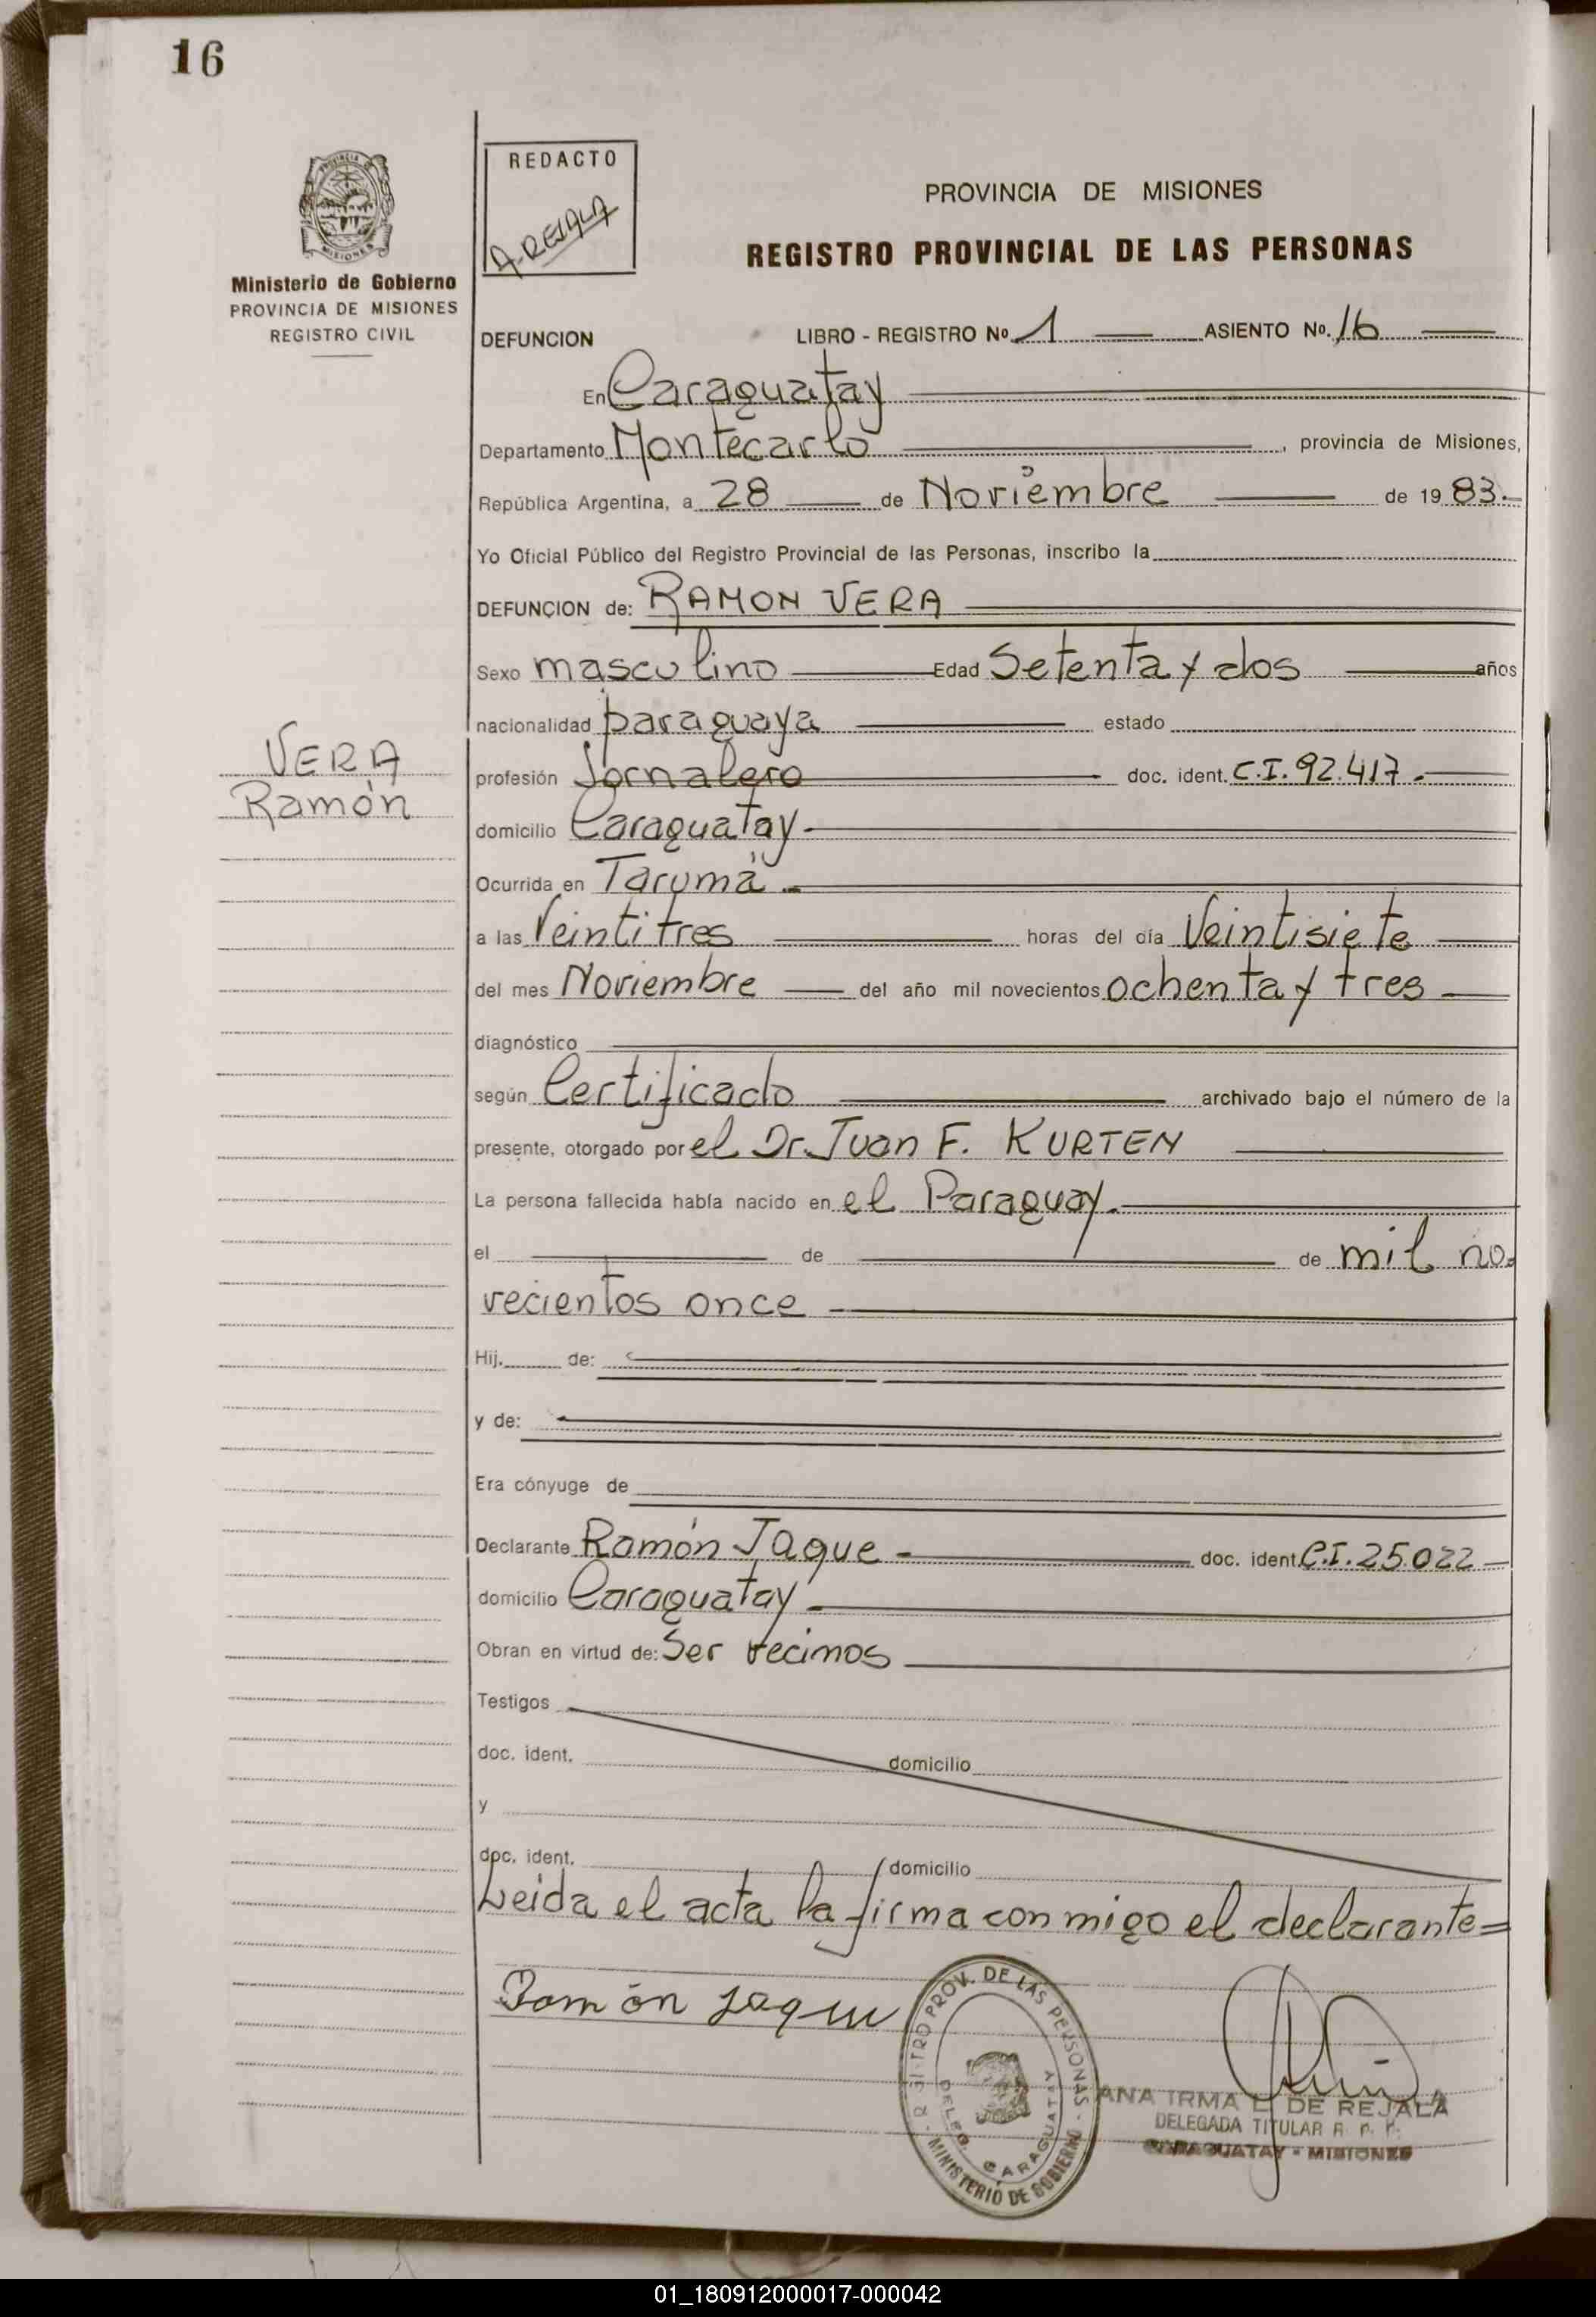 16
PROVINCIA DE MISIONES
Ministerio de Gobierno
PROVINCIA DE MISIONES
REGISTRO CIVIL
REDACTO
A. REJALA
PROVINCIA DE MISIONES
REGISTRO PROVINCIAL DE LAS PERSONAS
DEFUNCION LIBRO - REGISTRO Nº 1 ASIENTO Nº. 16
En Caraguatay
Departamento Montecarlo, provincia de Misiones,
República Argentina, a 28 de Noviembre de 1983.
Yo Oficial Público del Registro Provincial de las Personas, inscribo la
DEFUNCION de: RAMON VERA
Sexo masculino Edad Setenta y dos años
nacionalidad paraguaya estado
VERA
Ramón
profesión Jornalero doc. ident. C.I. 92.417.
domicilio Caraguatay.
Ocurrida en Tarumá.
a las Veintitres horas del día Veintisiete
del mes Noviembre del año mil novecientos ochenta y tres
diagnóstico
según Certificado archivado bajo el número de la
presente, otorgado por el Dr. Juan F. KURTEN
La persona fallecida había nacido en el Paraguay.
el de de mil no-
vecientos once
Hij. de:
y de:
Era cónyuge de
Declarante Ramón Jaque - doc. ident. C.I. 25.022
domicilio Caraguatay
Obran en virtud de: Ser vecinos
Testigos
doc. ident. domicilio
y
doc. ident. domicilio
Leida el acta la firma conmigo el declarante=
Ramón Jaque
PROV. DE LAS PERSONAS - MINISTERIO DE GOBIERNO -
DELEG. CARAGUATAY
ANA IRMA L. DE REJALA
DELEGADA TITULAR R. P. P.
CARAGUATAY - MISIONES
01_180912000017-000042